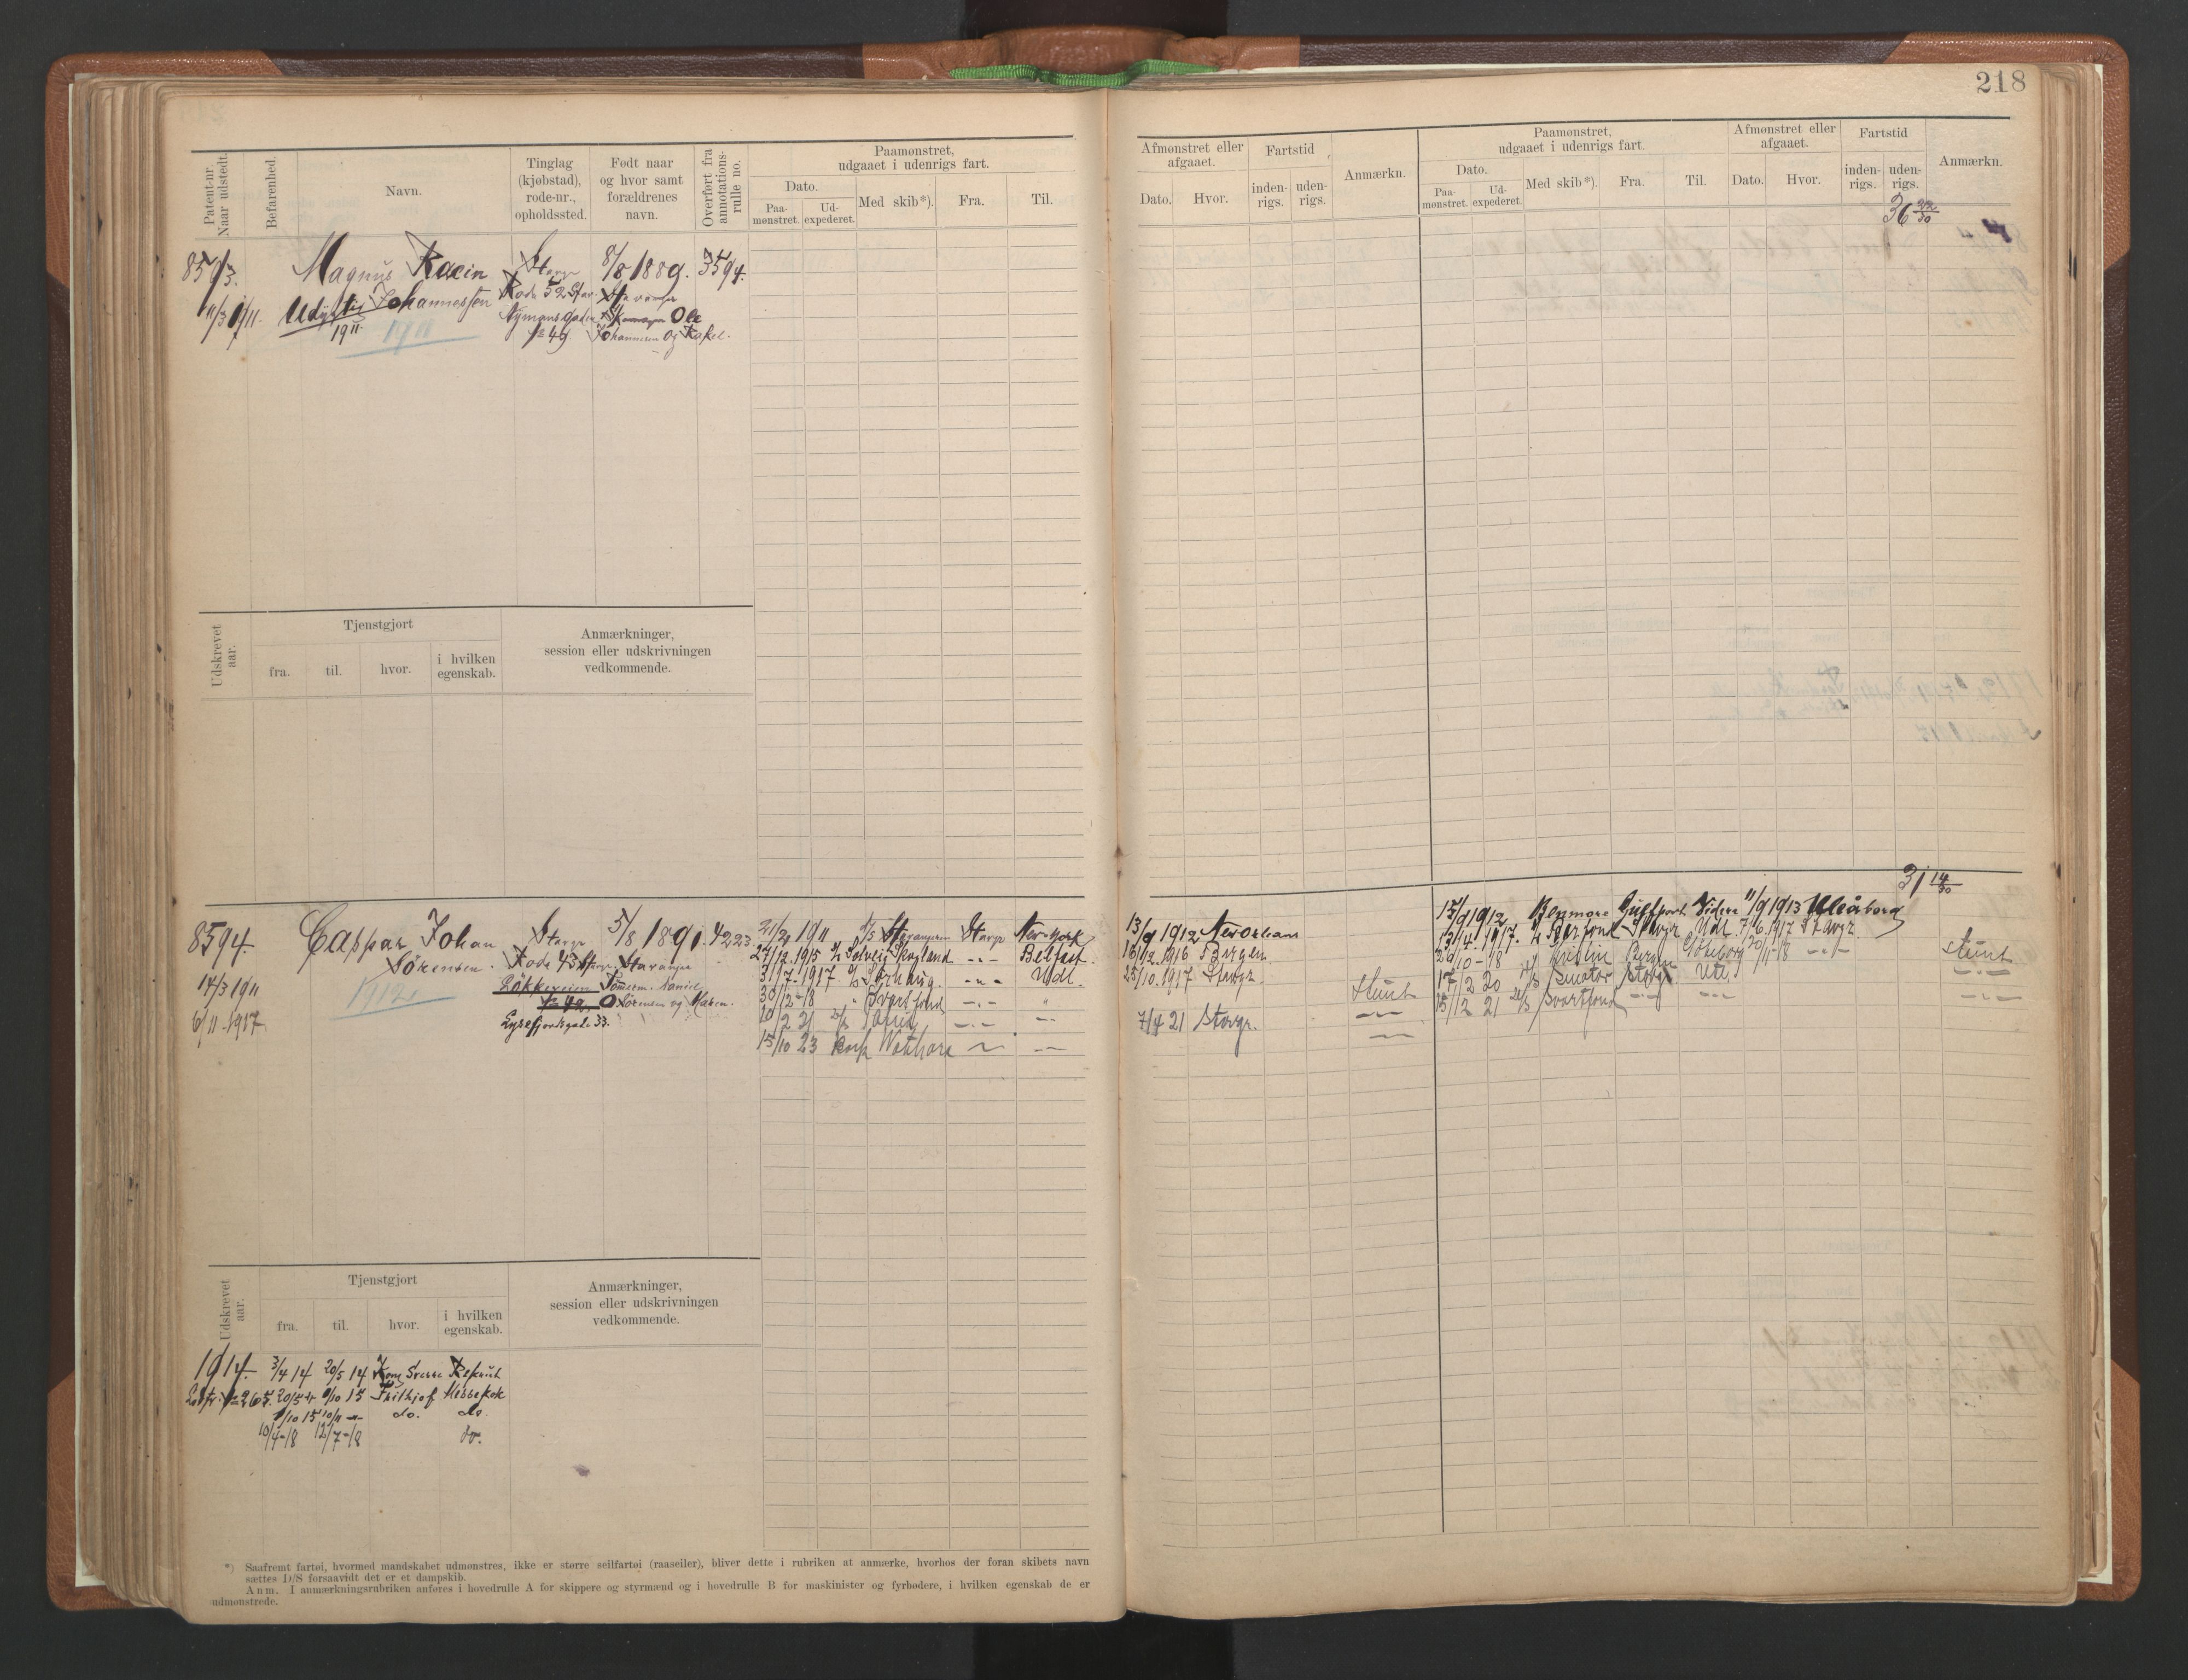 218
Patent-nr. Naar udstedt.
Befarenhed.
Navn.
Tinglag (kjøbstad), rode-nr., opholdssted.
Født naar og hvor samt forældrenes navn.
Overført fra annotations-rulle no.
Paamønstret, udgaaet i udenrigs fart.
Dato.
Paa-mønstret.
Ud-expederet.
Med skib*).
Fra.
Til.
Afmønstret eller afgaaet.
Dato.
Hvor.
Fartstid
inden-rigs.
uden-rigs.
Anmærkn.
Paamønstret, udgaaet i udenrigs fart.
Dato.
Paa-mønstret.
Ud-expederet.
Med skib*).
Fra.
Til.
Afmønstret eller afgaaet.
Dato.
Hvor.
Fartstid
inden-rigs.
uden-rigs.
Anmærkn.
36 22/30
8593. Magnus Stavgr 8/8 1889. 3594.
11/3 1911. Udgått Johannessen Rode 52 Stav. Stavanger
1911 1911 Nymansgaden Ole
№ 49 Johannesen og Rakel.
Udskrevet aar.
Tjenstgjort
fra.
til.
hvor.
i hvilken egenskab.
Anmærkninger, session eller udskrivningen vedkommende.
31 14/30
8594. Caspar Johan Stavgr 5/8 1891. 4223.
Sörensen. Rode 43 Stavgr. Stavanger
14/3 1911 1912 Tömerm. Daniel
6/11-1917 № 42. O Sörensen og Maren.
Lysefjordsgade 33.
21/2 1911 S/S Stavangeren Stavgr New-York
27/12.1915 Solveig Skogland -"- Belfast.
31/7-1917 -"- Udl.
30/12-18 " Svartfond -"- "
10/2 21 -"- -"-
15/10 23 -"- -"-
13/9 1912 New Orleans
16/12.1916 Bergen.
25/10.1917 Stavgr.
Stuert
7/4 21 Stavgr. -"-
-"-
15/9 1912 Benmore Gulfport Videre 11/9 1913 Uleåborg
13/4.1917. Stavgr. Udl. 7/6.1917 Stavgr.
29/10-18 Bergen Göteborg 20/11-18 -"- Stuert
17/2 20 Senator Stavgr Utl. -"-
15/12 21 Svartfond -"- -"- -"-
Udskrevet aar.
Tjenstgjort
fra.
til.
hvor.
i hvilken egenskab.
Anmærkninger, session eller udskrivningen vedkommende.
1914. 3/4 14 20/5 14 Kong Sverre Rekrut
№ 265. 20/5 9/10 15 Fridtjof Messekok
9/10 15 10/11 -"- do. do.
10/4-18 12/7-18 do.
*) Saafremt fartøi, hvormed mandskabet udmønstres, ikke er større seilfartøi (raaseiler), bliver dette i rubriken at anmærke, hvorhos der foran skibets navn
sættes D/S forsaavidt det er et dampskib.
Anm. I anmærkningsrubriken anføres i hovedrulle A for skippere og styrmænd og i hovedrulle B for maskinister og fyrbødere, i hvilken egenskab de er
udmønstrede.